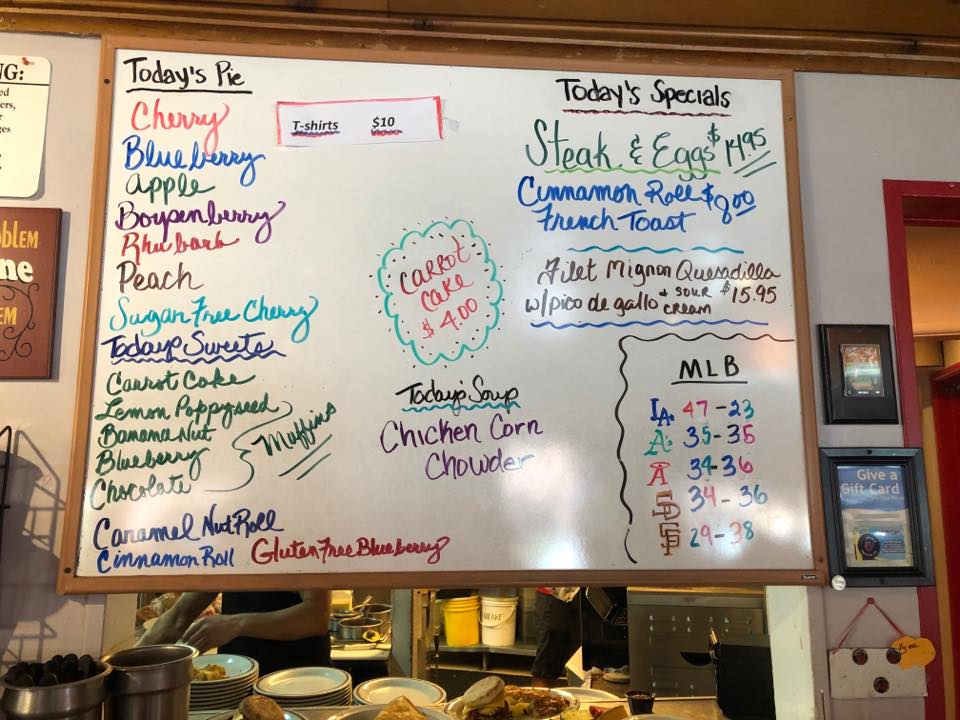 NG:
ed
ers,
r
ges
OBLEM
ne
EM
Today's Pie
Cherry
Blueberry
Apple
Boysenberry
Rhubarb
Peach
Sugar Free Cherry
Today's Sweets
Carrot Cake
Lemon Poppyseed
Banana Nut
Blueberry
Chocolate
Muffins
Caramel Nut Roll
Cinnamon Roll
Gluten Free Blueberry
T-shirts $10
Carrot
Cake
$4.00
Today's Soup
Chicken Corn
Chowder
Today's Specials
Steak & Eggs $14.95
Cinnamon Roll $9.00
French Toast
Filet Mignon Quesadilla
w/pico de gallo + sour cream $15.95
MLB
LA 47-23
A's 35-35
A 34-36
SD 34-36
SF 29-38
Give a
Gift Card